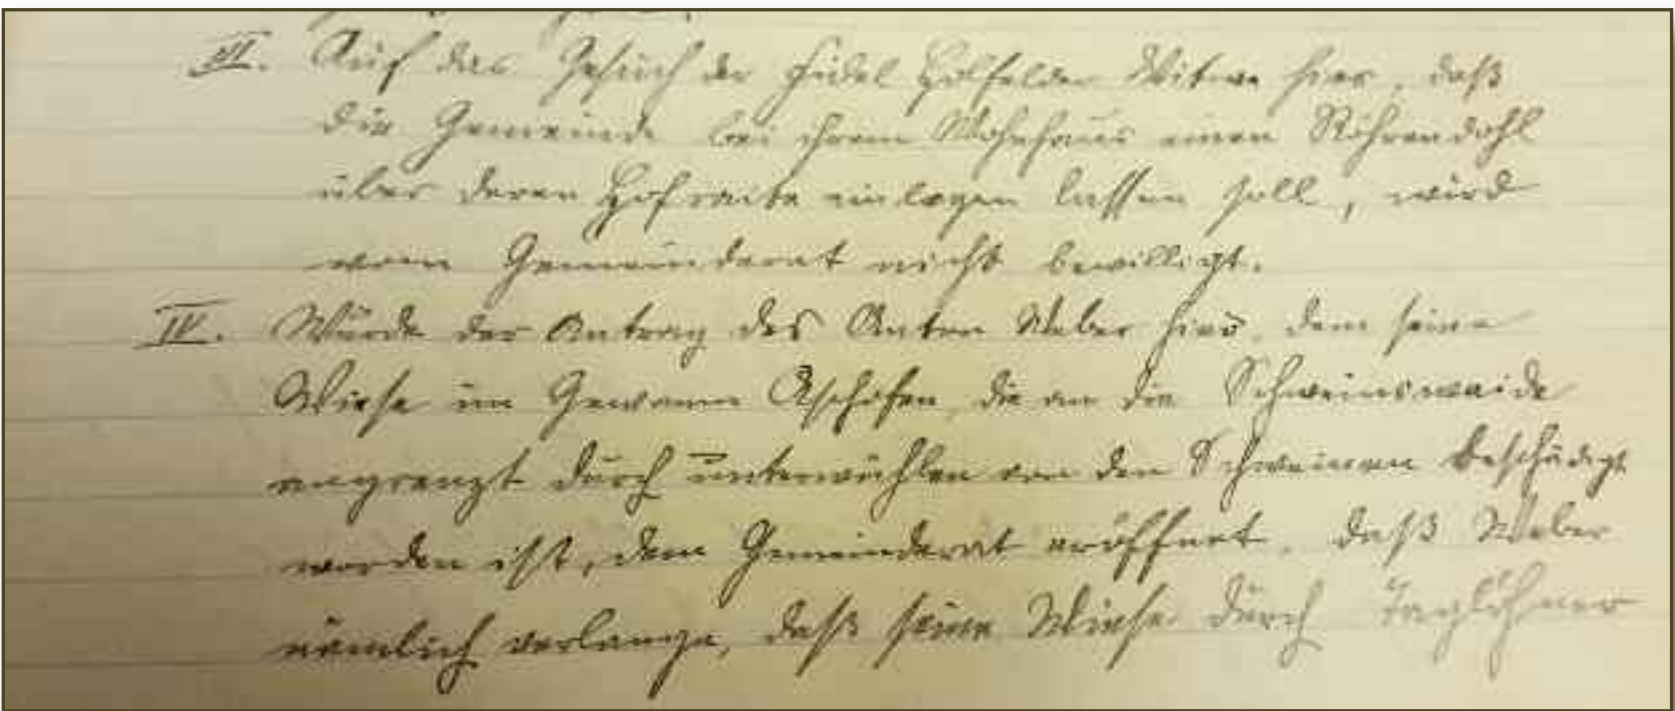 III. Auf das Gesuch der Fidel Holfelder Witwe hier, daß
die Gemeinde bei ihrem Wohnhaus einen Röhrendohl
über deren Hofraite einlegen lassen soll, wird
vom Gemeinderat nicht bewilligt.
IV. Wurde der Antrag des Anton Weber hier, dem seine
Wiese im Gewann Aschofen, die an die Schweinswaide
angrenzt durch unterwühlen von den Schweinen beschädigt
worden ist, dem Gemeinderat eröffnet, daß Weber
nämlich verlange, daß seine Wiese durch Taglöhner